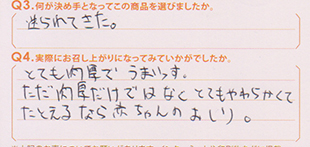 Q3.何が決め手となってこの商品を選びましたか。
送られてきた。
Q4.実際にお召し上がりになってみていかがでしたか。
とても肉厚で うまいっす。
ただ肉厚だけではなく とてもやわらかくて
たとえるなら 赤ちゃんのおしり。